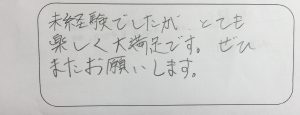 未経験でしたが、とても
楽しく大満足です。ぜひ
またお願いします。